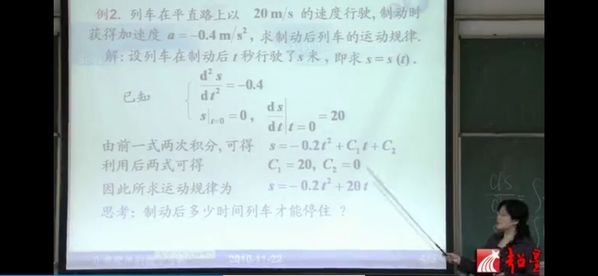 例2. 列车在平直路上以 20 m/s 的速度行驶, 制动时
获得加速度 a = −0.4 m/s², 求制动后列车的运动规律.
解: 设列车在制动后 t 秒行驶了 s 米, 即求 s = s (t).
已知 { d²s/dt² = −0.4
s|t=0 = 0, ds/dt|t=0 = 20
由前一式两次积分, 可得 s = −0.2 t² + C₁ t + C₂
利用后两式可得 C₁ = 20, C₂ = 0
因此所求运动规律为 s = −0.2 t² + 20 t
思考: 制动后多少时间列车才能停住 ?
2010-11-22